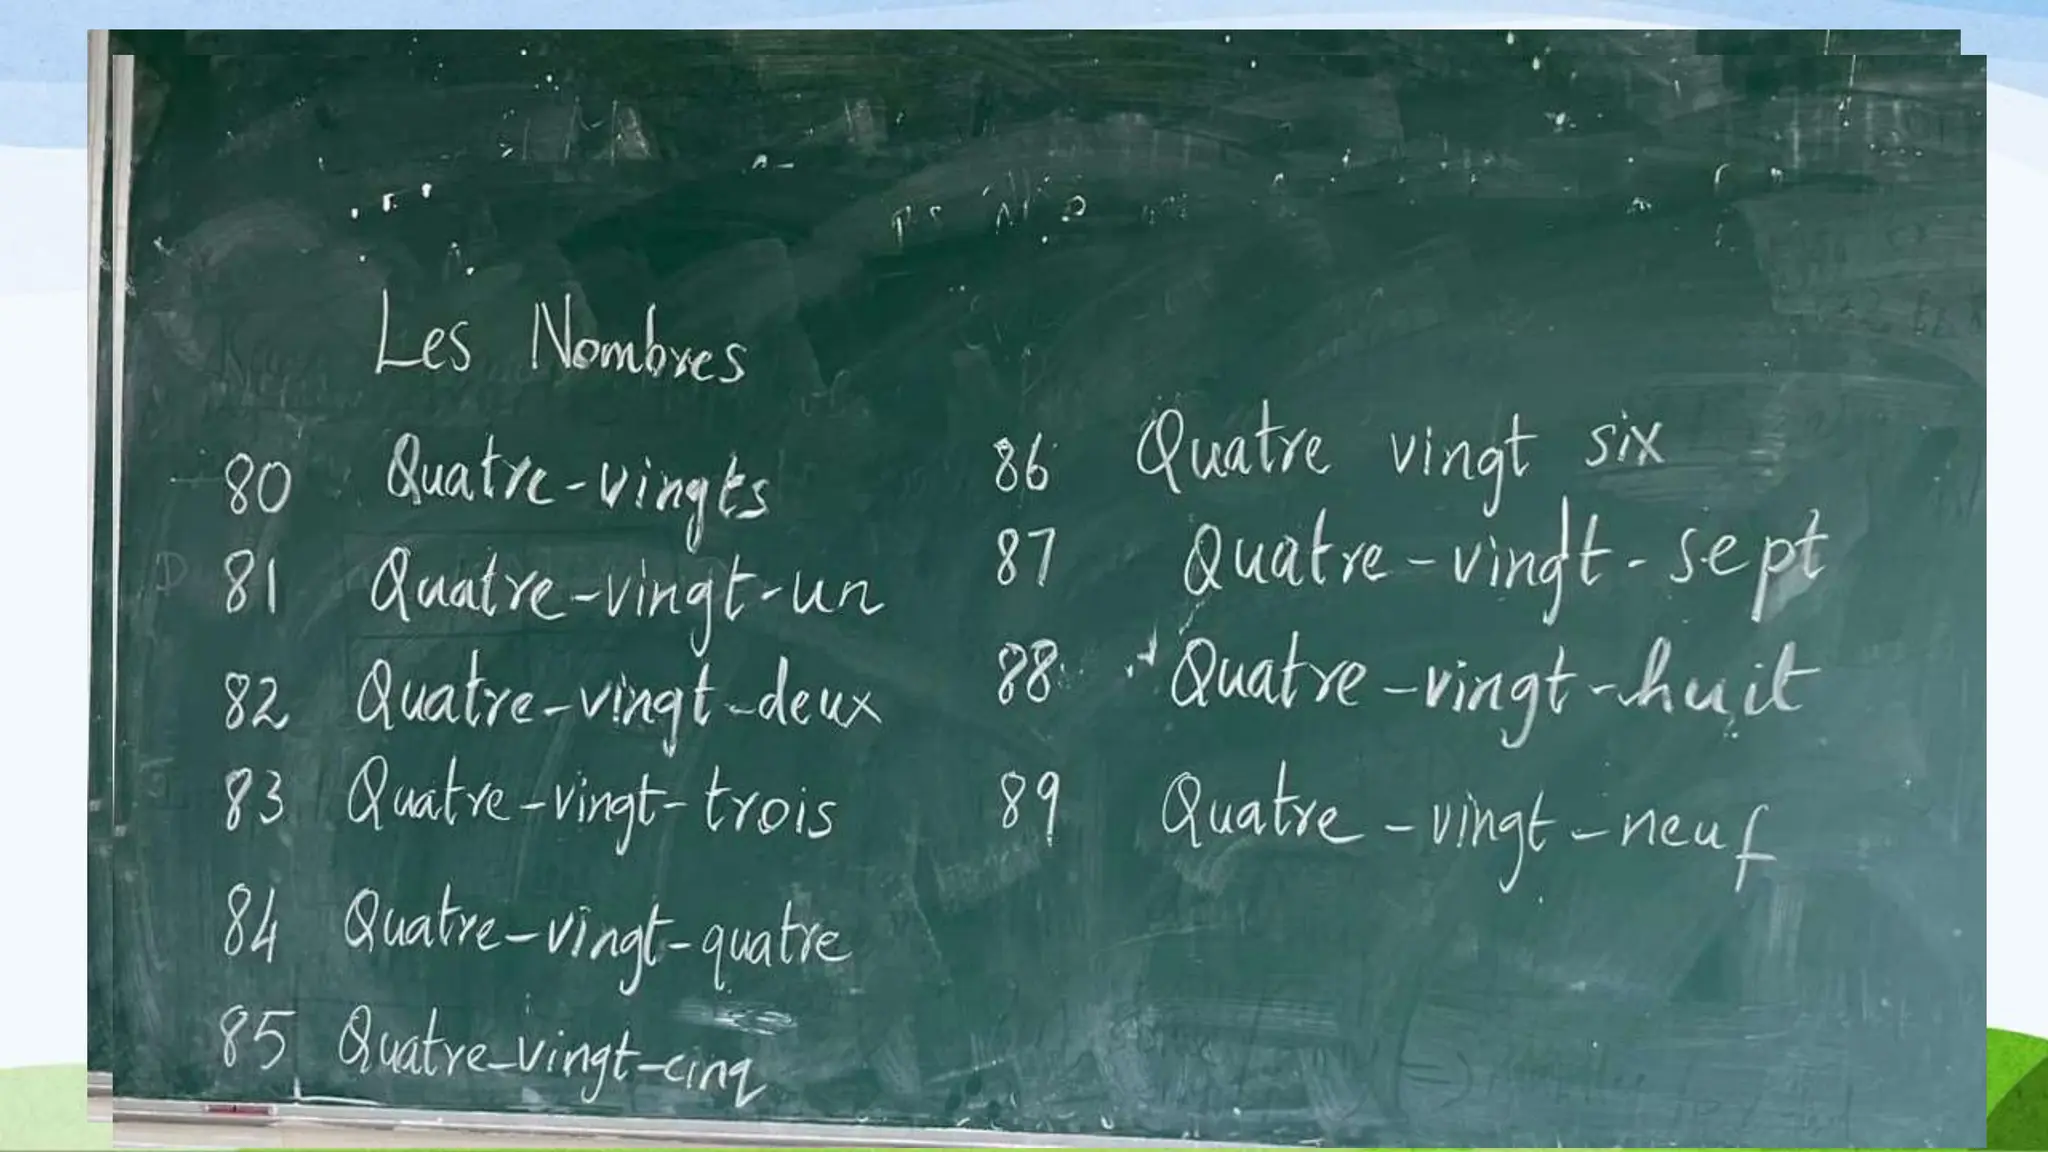 Les Nombres
80 Quatre-vingts
81 Quatre-vingt-un
82 Quatre-vingt-deux
83 Quatre-vingt-trois
84 Quatre-vingt-quatre
85 Quatre-vingt-cinq
86 Quatre vingt six
87 Quatre-vingt-sept
88 Quatre-vingt-huit
89 Quatre-vingt-neuf